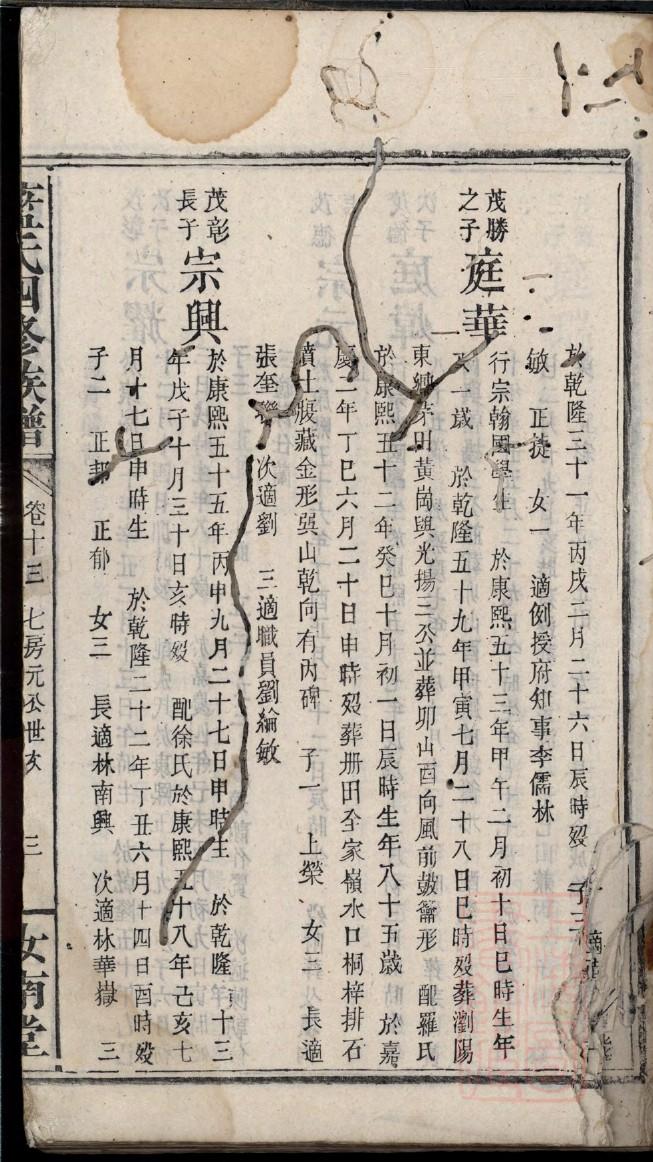 於乾隆三十一年丙戌二月二十六日辰時歿 子三
敏 正捷 女一 適例授府知事李儒林
茂勝
之子
庭華
行宗翰國學生 於康熙五十三年甲午二月初十日巳時生年
一歲 於乾隆五十九年甲寅七月二十八日巳時歿葬瀏陽
東鄉茅田黃崗與光揚三公並葬卯山酉向風前皷翕形 配羅氏
於康熙五十二年癸巳十月初一日辰時生年八十五歲 於嘉
慶二年丁巳六月二十日申時歿葬冊田全家嶺水口桐梓排石
墳上寢藏金形巽山乾向有內碑 子一 上榮 女三 長適
張奎 次適劉 三適職員劉綸敏
茂彰
長子
宗興
於康熙五十五年丙申九月二十七日申時生 於乾隆三十三
年戊子十月三十日亥時歿 配徐氏於康熙五十八年己亥七
月十七日申時生 於乾隆二十二年丁丑六月十四日酉時歿
子二 正邦 正郁 女三 長適林南興 次適林華嶽 三
氏四修族譜
卷十三 七房元公世次
三
汝南堂